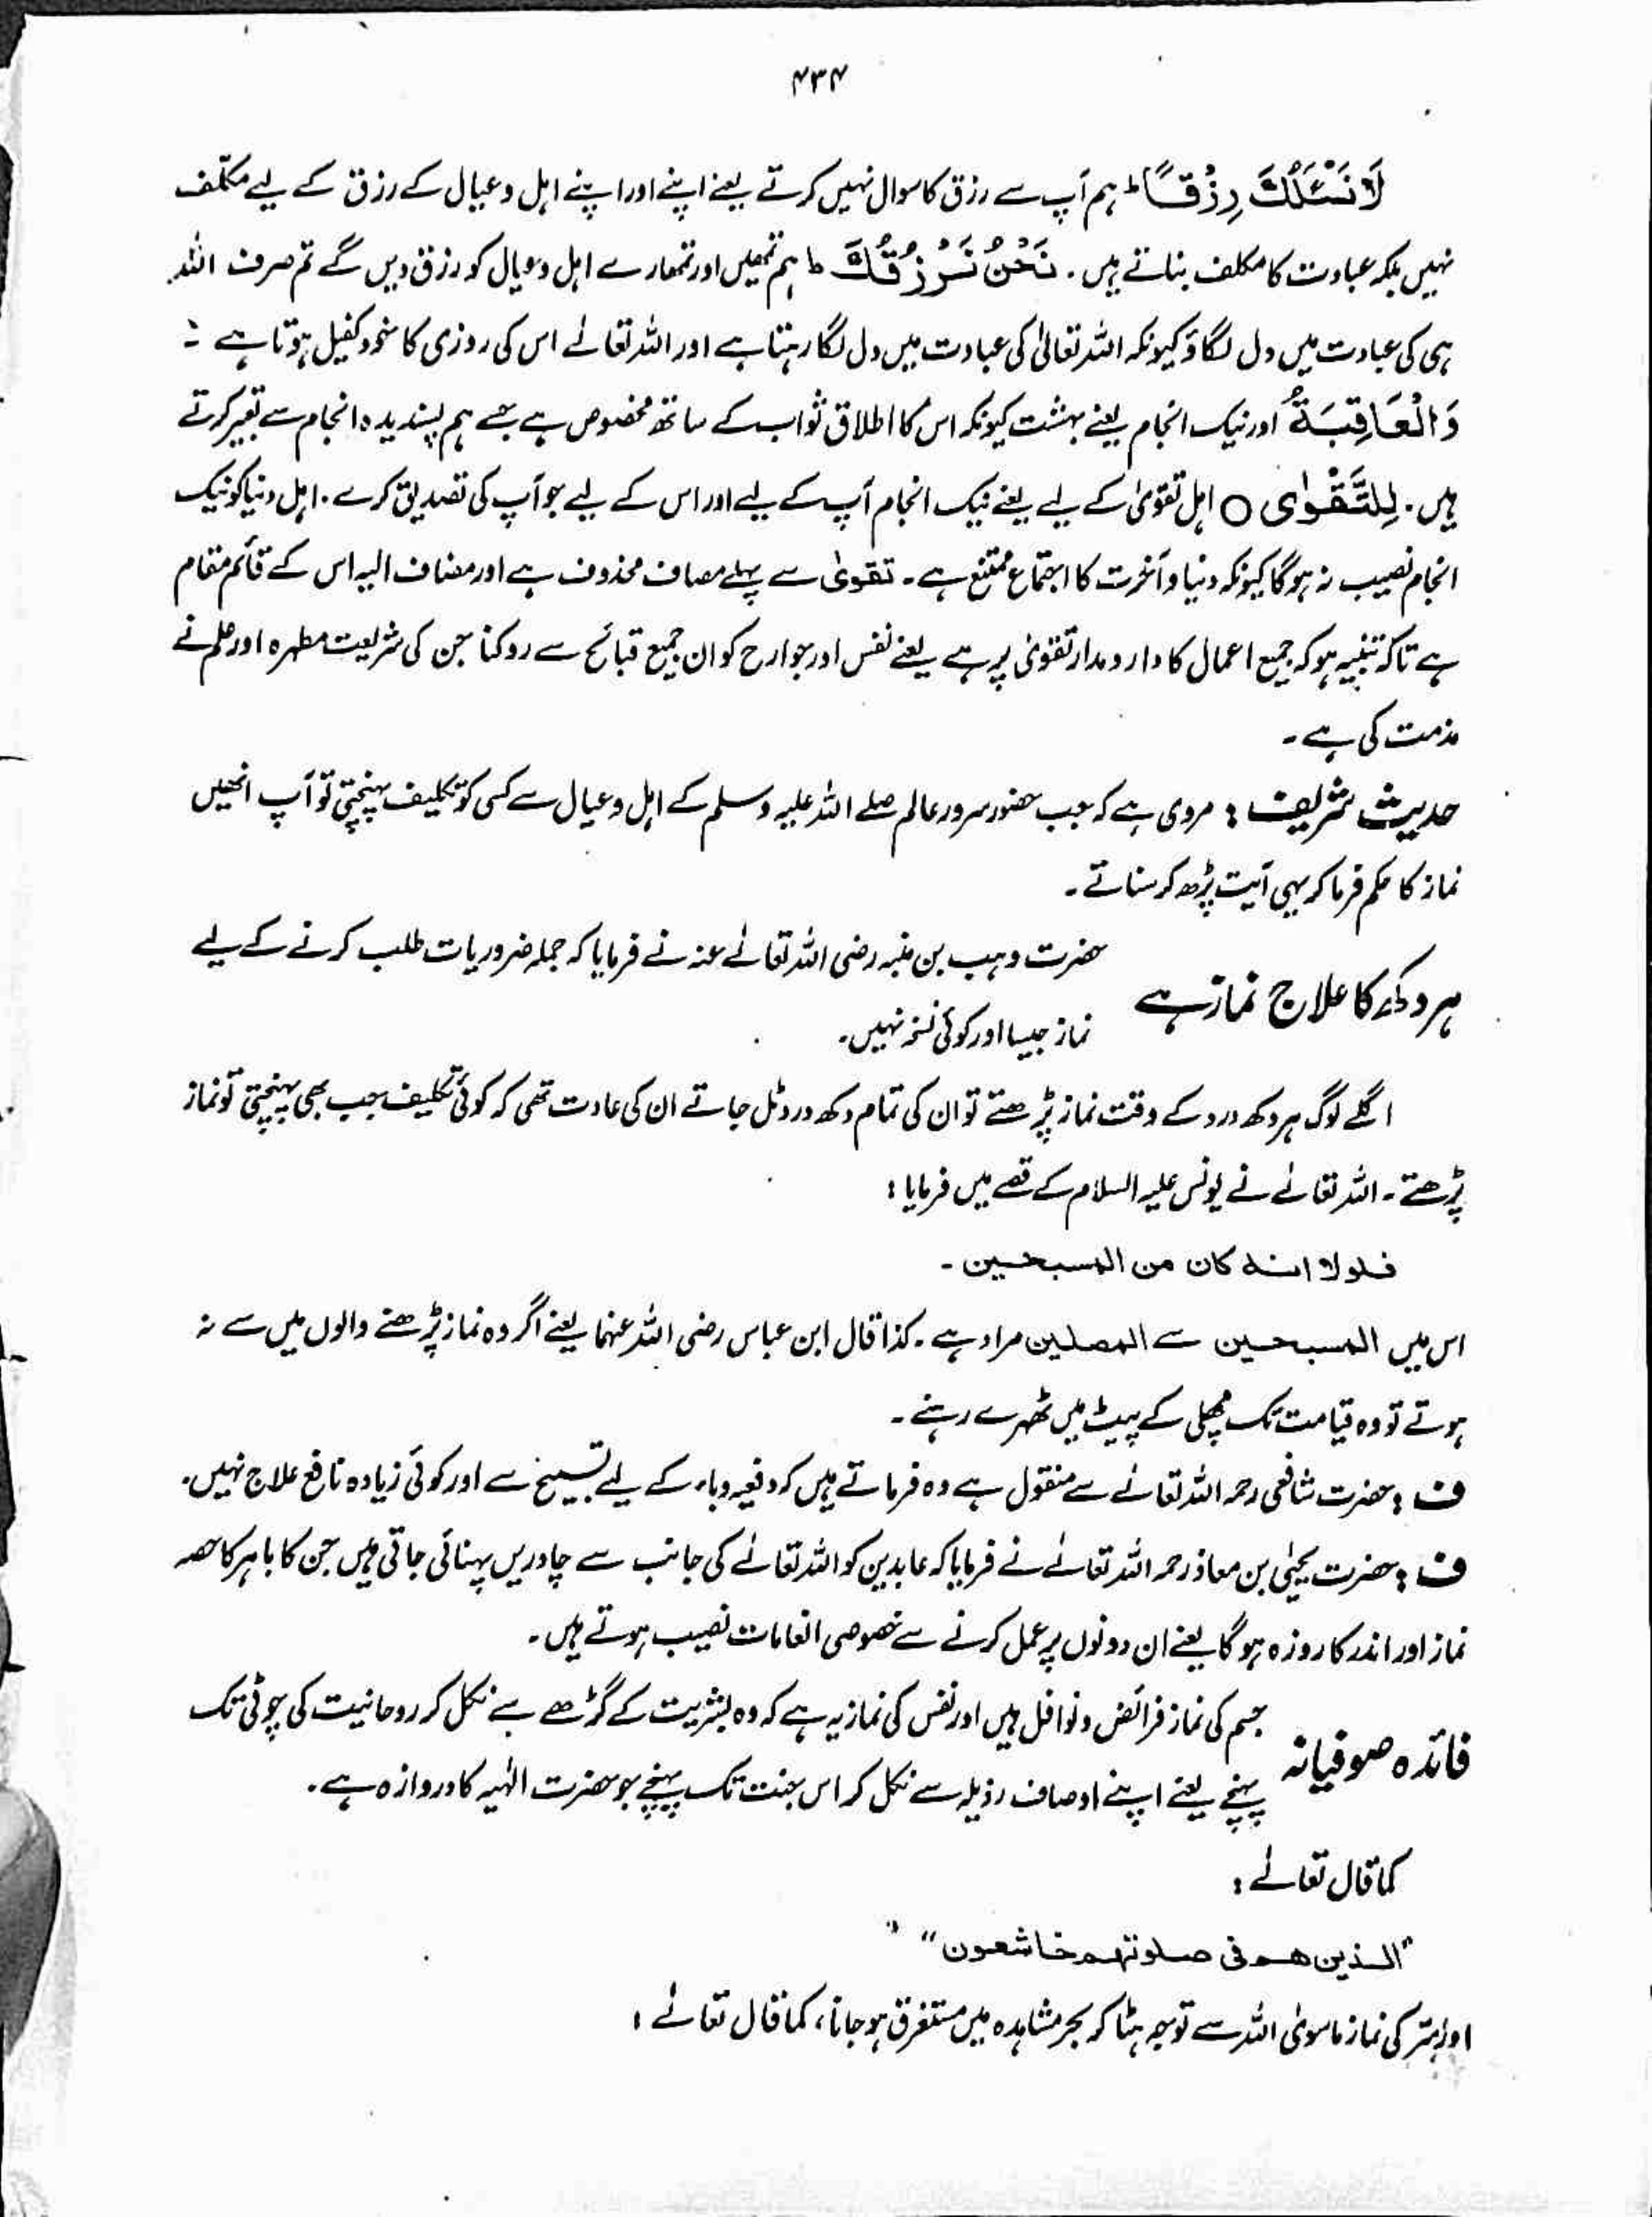 ۴۳۴
لَا نَسْئَلُكَ رِزْقًا ط ہم آپ سے رزق کا سوال نہیں کرتے یعنے اپنے اور اپنے اہل و عیال کے رزق کے لیے مکلّف
نہیں بلکہ عبادت کا مکلف بناتے ہیں۔ نَحْنُ نَرْزُقُكَ ط ہم تمھیں اور تمھارے اہل و عیال کو رزق دیں گے تم صرف اللہ
ہی کی عبادت میں دل لگاؤ کیونکہ اللہ تعالیٰ کی عبادت میں دل لگا رہتا ہے اور اللہ تعالےٰ اس کی روزی کا خود کفیل ہوتا ہے :
وَالْعَاقِبَةُ اور نیک انجام یعنے بہشت کیونکہ اس کا اطلاق ثواب کے ساتھ مخصوص ہے جسے ہم پسندیدہ انجام سے تعبیر کرتے
ہیں۔ لِلتَّقْوٰی ○ اہل تقویٰ کے لیے یعنے نیک انجام آپ کے لیے اور اس کے لیے جو آپ کی تصدیق کرے۔ اہل دنیا کو نیک
انجام نصیب نہ ہوگا کیونکہ دنیا و آخرت کا اجتماع ممتنع ہے۔ تقویٰ سے پہلے مصاف محذوف ہے اور مضاف الیہ اس کے قائم مقام
ہے تاکہ تنبیہ ہو کہ جمیع اعمال کا دار و مدار تقویٰ پر ہے یعنے نفس اور جوارح کو ان جمیع قبائح سے روکنا جن کی شریعت مطہرہ اور علم نے
مذمت کی ہے۔
حدیث شریف : مروی ہے کہ جب حضور سرور عالم صلے اللہ علیہ وسلم کے اہل و عیال سے کسی کو تکلیف پہنچتی تو آپ انھیں
نماز کا حکم فرما کر یہی آیت پڑھ کر سناتے۔
ہر دکھ کا علاج نماز ہے حضرت وہب بن منبہ رضی اللہ تعالےٰ عنہ نے فرمایا کہ جملہ ضروریات طلب کرنے کے لیے
نماز جیسا اور کوئی نسخہ نہیں۔
اگلے لوگ ہر دکھ درد کے وقت نماز پڑھتے تو ان کی تمام دکھ درد ٹل جاتے ان کی عادت تھی کہ کوئی تکلیف جب بھی پہنچتی تو نماز
پڑھتے۔ اللہ تعالےٰ نے یونس علیہ السلام کے قصے میں فرمایا :
فلولا انه كان من المسبحين۔
اس میں المسبحین سے المصلین مراد ہے۔ کذا قال ابن عباس رضی اللہ عنہما یعنے اگر وہ نماز پڑھنے والوں میں سے نہ
ہوتے تو وہ قیامت تک مچھلی کے پیٹ میں ٹھہرے رہتے۔
ف : حضرت شافعی رحمہ اللہ تعالےٰ سے منقول ہے وہ فرماتے ہیں کہ دفعیہ وباء کے لیے تسبیح سے اور کوئی زیادہ نافع علاج نہیں۔
ف : حضرت یحییٰ بن معاذ رحمہ اللہ تعالےٰ نے فرمایا کہ عابدین کو اللہ تعالےٰ کی جانب سے چادریں پہنائی جاتی ہیں جن کا باہر کا حصہ
نماز اور اندر کا روزہ ہوگا یعنے ان دونوں پر عمل کرنے سے خصوصی انعامات نصیب ہوتے ہیں۔
فائدہ صوفیانہ جسم کی نماز فرائض و نوافل ہیں اور نفس کی نماز یہ ہے کہ وہ بشریت کے گڑھے سے نکل کر روحانیت کی چوٹی تک
پہنچے یعنے اپنے اوصاف رذیلہ سے نکل کر اس جنت تک پہنچے جو حضرت الٰہیہ کا دروازہ ہے۔
کما قال تعالےٰ :
"الذین هم فی صلوتهم خاشعون"
اور سِر کی نماز ماسویٰ اللہ سے توجہ ہٹا کر بحر مشاہدہ میں مستغرق ہو جانا، کما قال تعالےٰ :